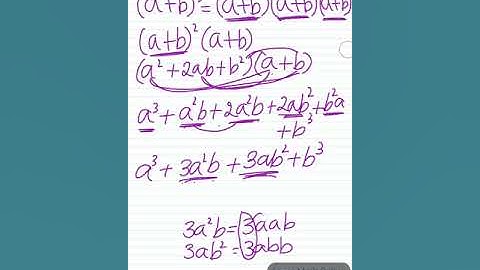 (a+b)³ = (a+b)(a+b)(a+b)
(a+b)²(a+b)
(a²+2ab+b²)(a+b)
a³+a²b+2a²b+2ab²+b²a
+b³
a³+3a²b+3ab²+b³
3a²b=3aab
3ab²=3abb